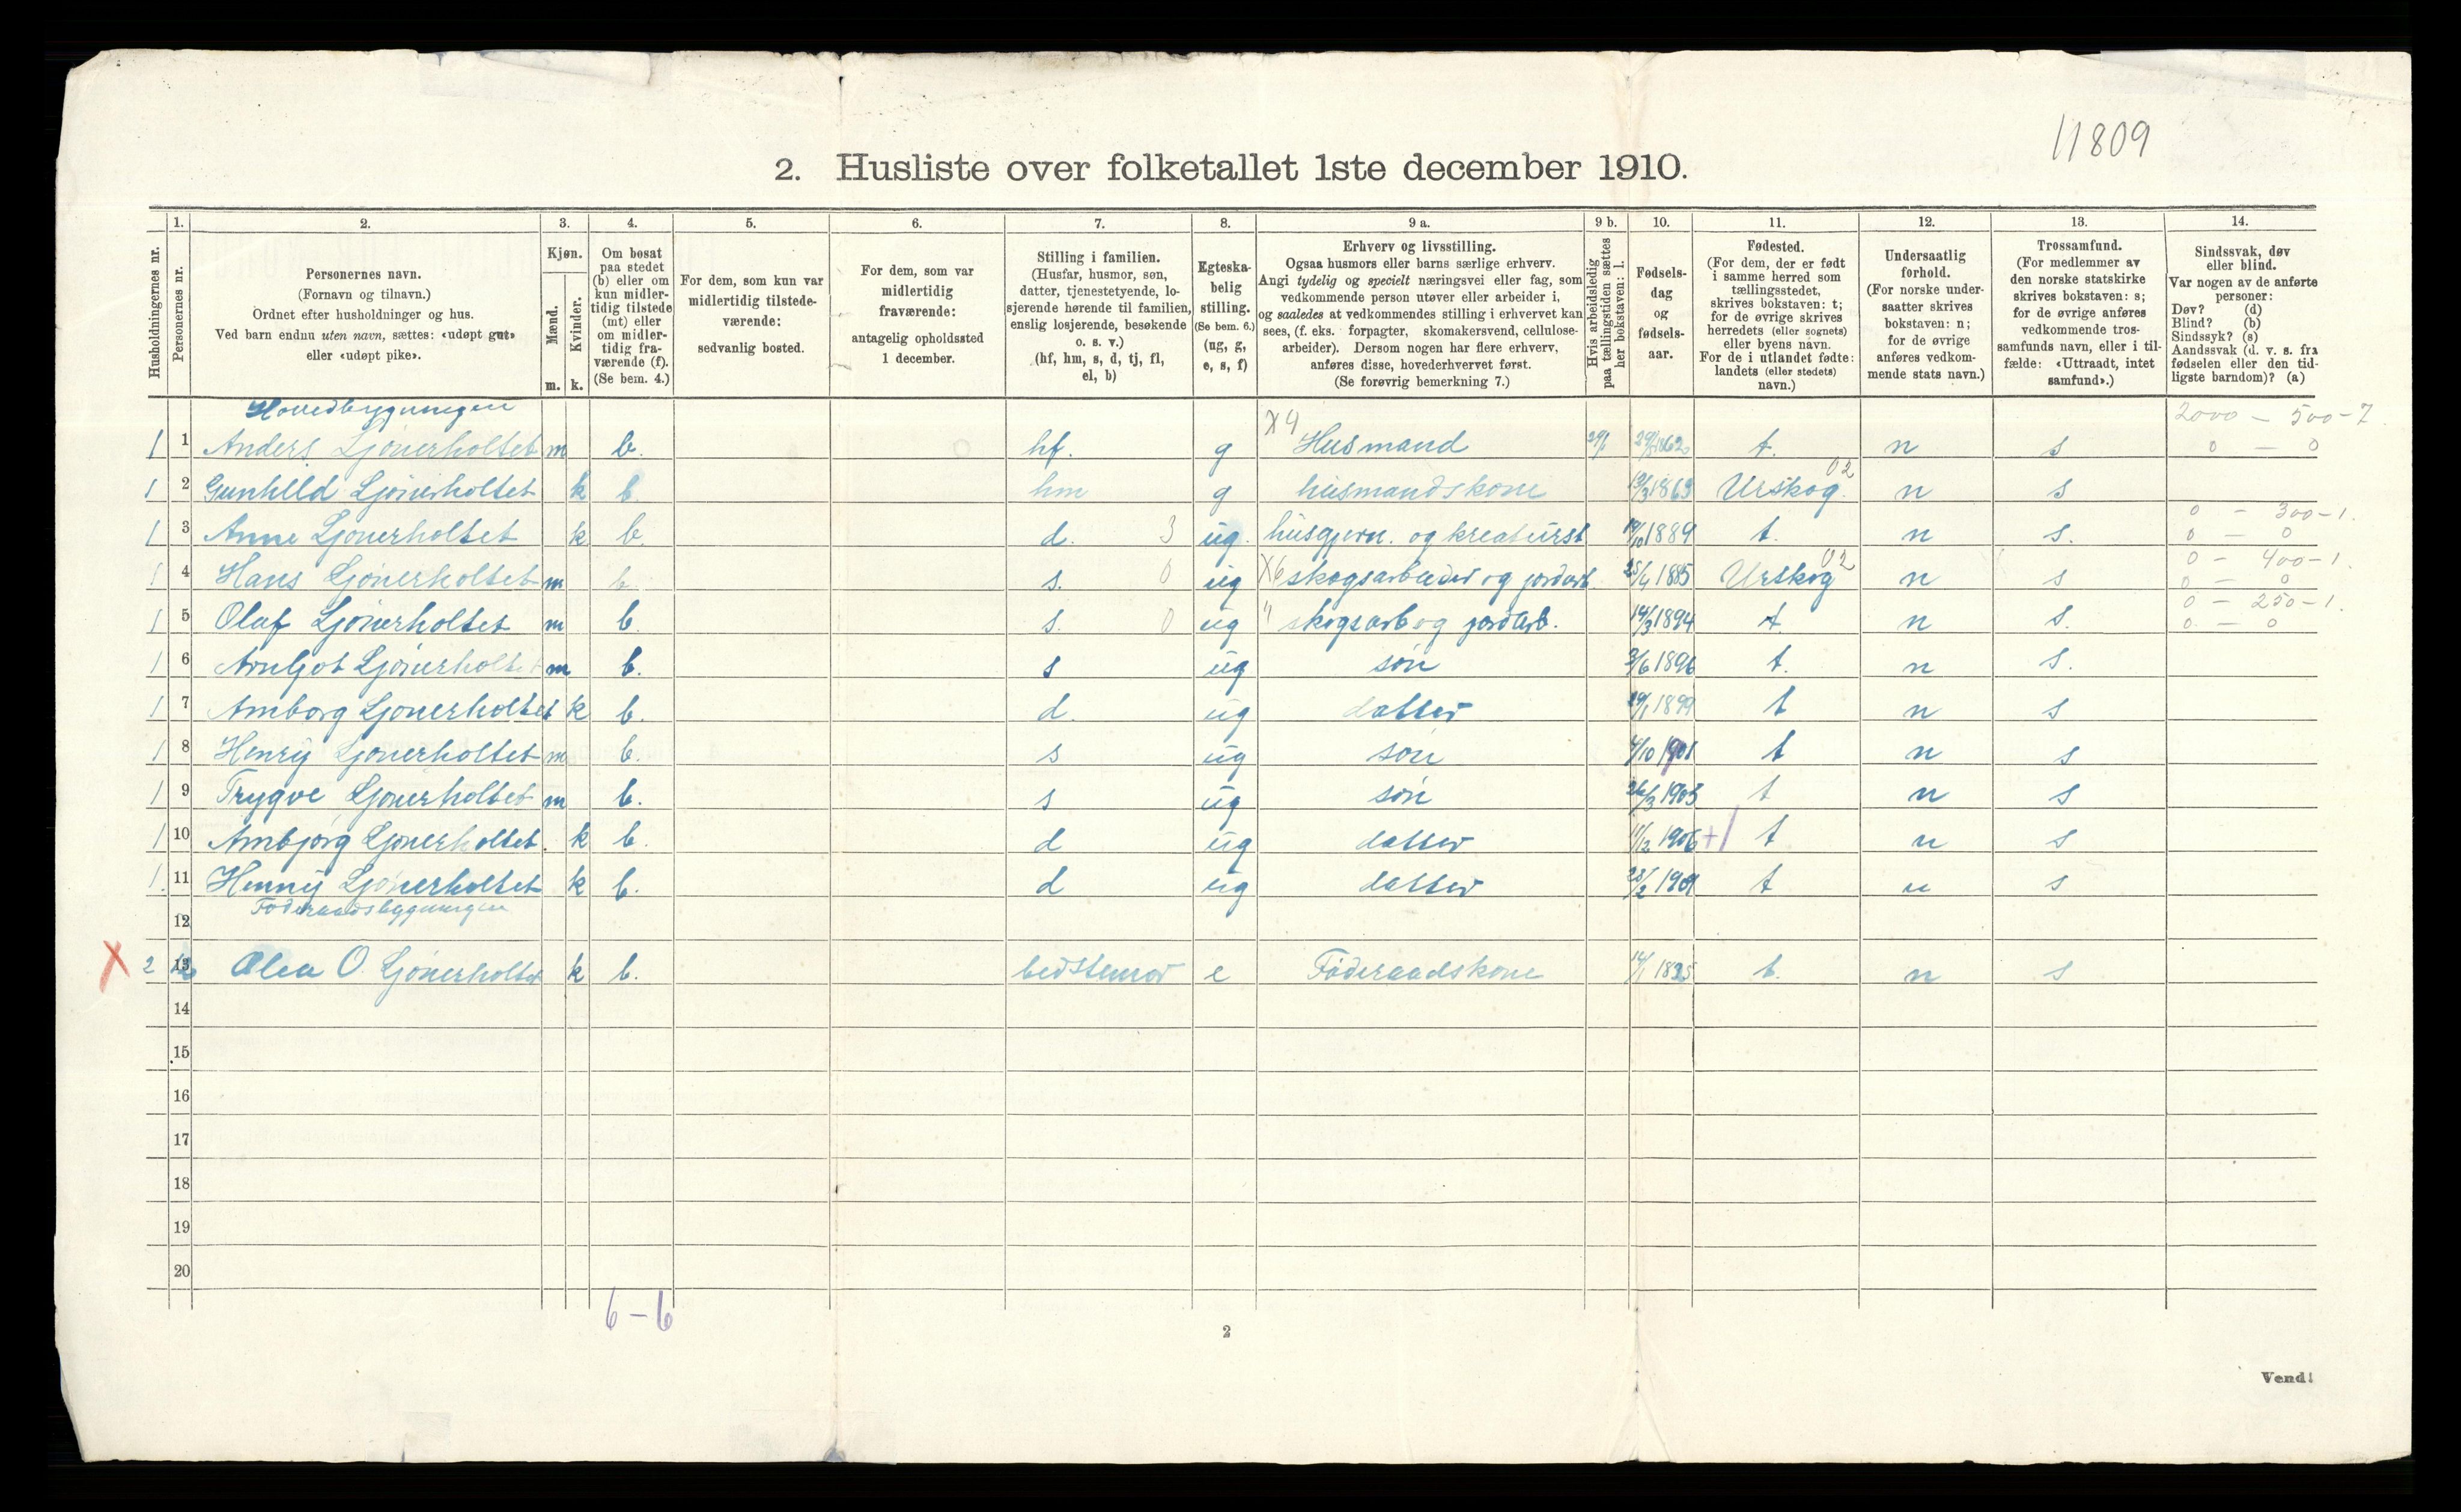 11809
2. Husliste over folketallet 1ste december 1910.
Husholdningernes nr.
1.
Personernes nr.
2.
Personernes navn.
(Fornavn og tilnavn.)
Ordnet efter husholdninger og hus.
Ved barn endnu uten navn, sættes: «udøpt gut»
eller «udøpt pike».
3.
Kjøn.
Mænd.
Kvinder.
m. k.
4.
Om bosat
paa stedet
(b) eller om
kun midler-
tidig tilstede
(mt) eller
om midler-
tidig fra-
værende (f).
(Se bem. 4.)
5.
For dem, som kun var
midlertidig tilstede-
værende:
sedvanlig bosted.
6.
For dem, som var
midlertidig
fraværende:
antagelig opholdssted
1 december.
7.
Stilling i familien.
(Husfar, husmor, søn,
datter, tjenestetyende, lo-
sjerende hørende til familien,
enslig losjerende, besøkende
o. s. v.)
(hf, hm, s, d, tj, fl,
el, b)
8.
Egteska-
belig
stilling.
(Se bem. 6.)
(ug, g,
e, s, f)
9 a.
Erhverv og livsstilling.
Ogsaa husmors eller barns særlige erhverv.
Angi tydelig og specielt næringsvei eller fag, som
vedkommende person utøver eller arbeider i,
og saaledes at vedkommendes stilling i erhvervet kan
sees, (f. eks. forpagter, skomakersvend, cellulose-
arbeider). Dersom nogen har flere erhverv,
anføres disse, hovederhvervet først.
(Se forøvrig bemerkning 7.)
9 b.
Hvis arbeidsledig
paa tællingstiden sættes
her bokstaven: l.
10.
Fødsels-
dag
og
fødsels-
aar.
11.
Fødested.
(For dem, der er født
i samme herred som
tællingsstedet,
skrives bokstaven: t;
for de øvrige skrives
herredets (eller sognets)
eller byens navn.
For de i utlandet fødte:
landets (eller stedets)
navn.)
12.
Undersaatlig
forhold.
(For norske under-
saatter skrives
bokstaven: n;
for de øvrige
anføres vedkom-
mende stats navn.)
13.
Trossamfund.
(For medlemmer av
den norske statskirke
skrives bokstaven: s;
for de øvrige anføres
vedkommende tros-
samfunds navn, eller i til-
fælde: «Uttraadt, intet
samfund».)
14.
Sindssvak, døv
eller blind.
Var nogen av de anførte
personer:
Døv? (d)
Blind? (b)
Sindssyk? (s)
Aandssvak (d. v. s. fra
fødselen eller den tid-
ligste barndom)? (a)
Hovedbygningen X4 2000 - 500-7
1 1 Anders Ljønerholtet m b. hf. g Husmand t. n s 0 - 0
1 2 Gunhild Ljønerholtet k b hm g husmandskone 1863 Urskog. 02 n s
0 - 300-1.
1 3 Anne Ljønerholtet k b. d. 3 ug. husgjern. og kreaturst 19/10 1889 t. n s. 0 - 0
0 - 400-1.
1 4 Hans Ljønerholtet m b. s. 0 ug X6 skogsarbeider og jordarb. 25/4 1885 Urskog 02 n s 0 - 0
0 - 250-1.
1 5 Olaf Ljønerholtet m b. s. 0 ug " skogsarb og jordarb. 14/3 1894 t. n s. 0 - 0
1 6 Arnljot Ljønerholtet m b. s ug søn 3/6 1896 t. n s.
1 7 Amborg Ljønerholtet k b. d. ug datter 29/1 1899 t n s
1 8 Henry Ljønerholtet m b. s ug søn 4/10 1901 t n s
1 9 Trygve Ljønerholtet m b. s ug søn 26/3 1903 t n s
1 10 Ambjørg Ljønerholtet. k b. d ug datter 11/12 1906 +1 t n s
1. 11 Henny Ljønerholtet k b. d ug datter 28/2 1909 t n s
Føderaadsbygningen
12
X 2 13 Olea O. Ljønerholtet k b. bedstemor e Føderaadskone 14/1 1825 t. n s
14
15
16
17
18
19
20
6 - 6
2
Vend!